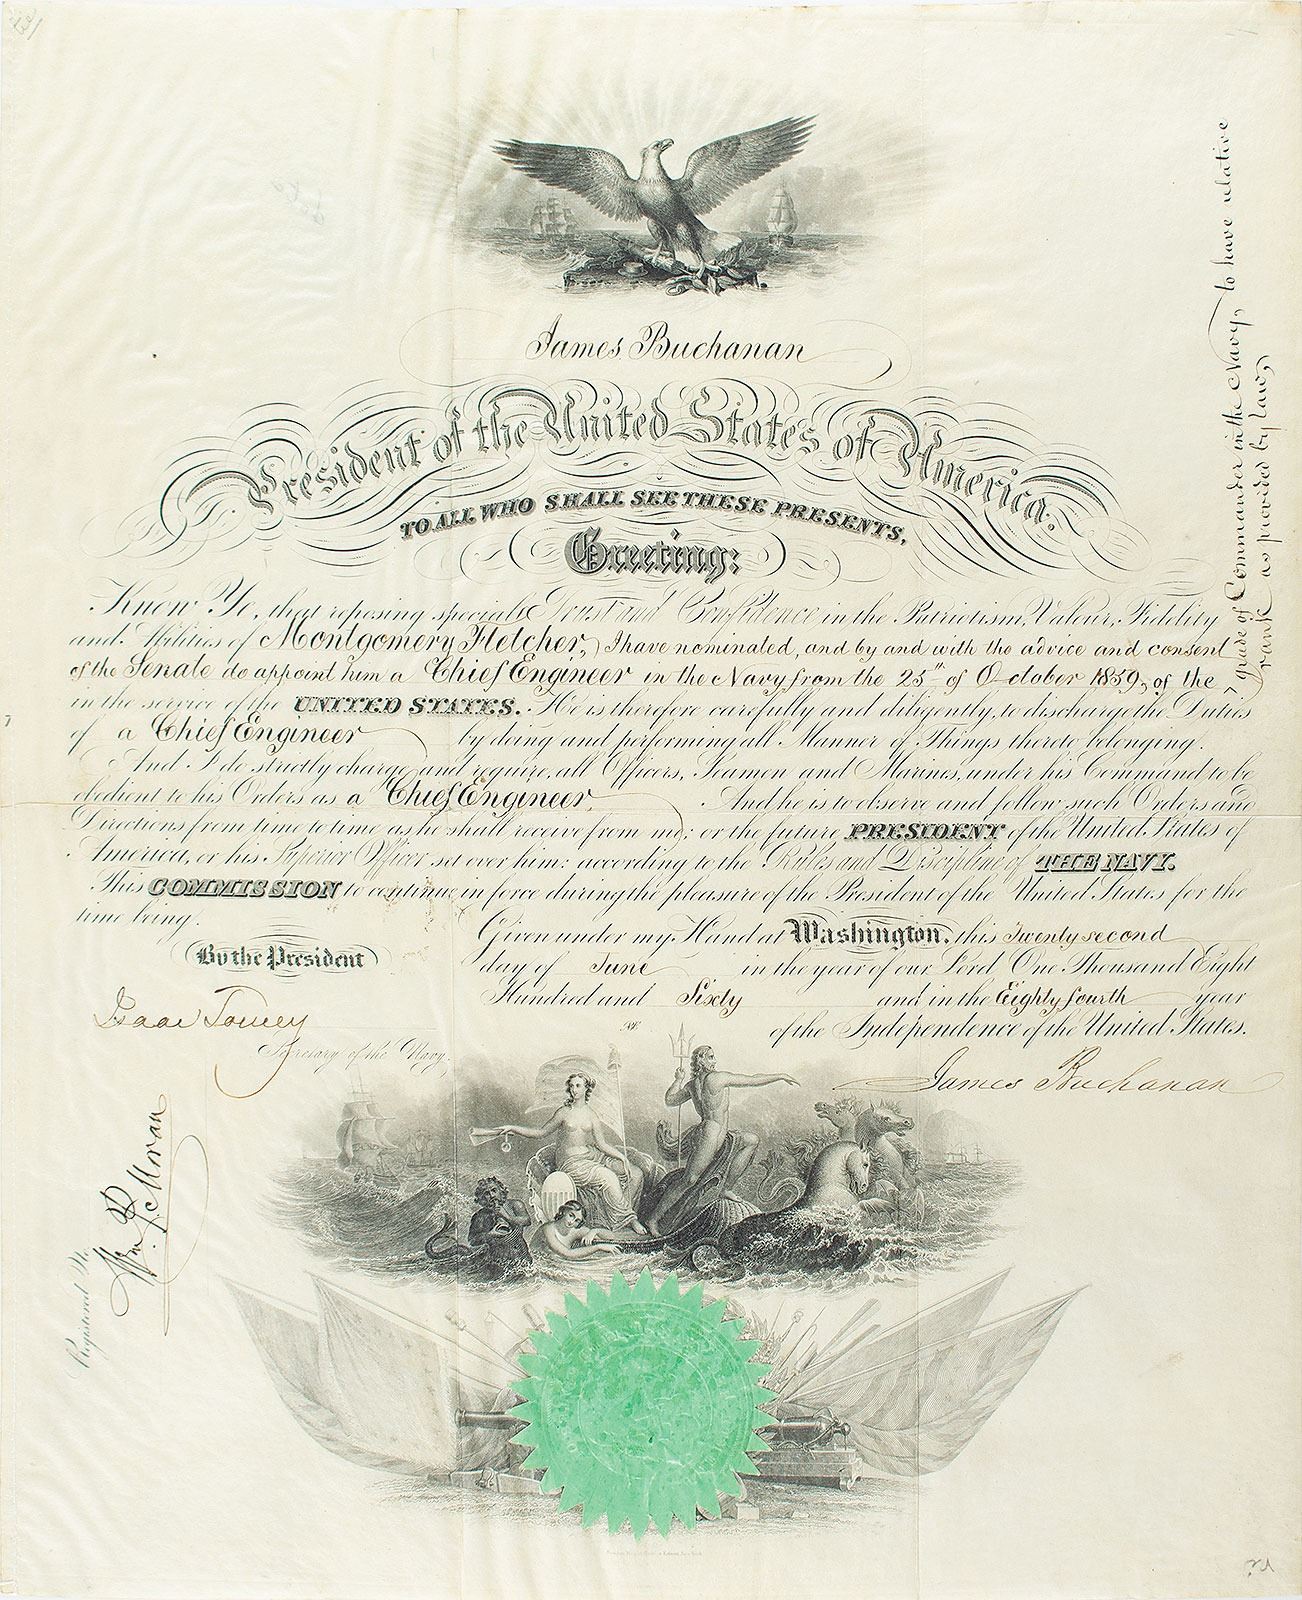 James Buchanan
President of the United States of America.
TO ALL WHO SHALL SEE THESE PRESENTS,
Greeting:
Know Ye, that reposing special Trust and Confidence in the Patriotism, Valour, Fidelity
and Abilities of Montgomery Fletcher, I have nominated, and by and with the advice and consent
of the Senate do appoint him a Chief Engineer in the Navy from the 25th of October 1859, of the ^
grade of Commander in the Navy, to have relative
rank as provided by law,
in the service of the UNITED STATES. He is therefore carefully and diligently, to discharge the Duties
of a Chief Engineer by doing and performing all Manner of Things thereto belonging.
And I do strictly charge and require, all Officers, Seamen and Marines, under his Command to be
obedient to his Orders as a Chief Engineer. And he is to observe and follow such Orders and
Directions from time to time as he shall receive from me; or the future PRESIDENT of the United States of
America, or his Superior Officer set over him: according to the Rules and Discipline of THE NAVY.
This COMMISSION to continue in force during the pleasure of the President of the United States for the
time being.
Given under my Hand at Washington. this Twenty second
day of June in the year of our Lord One Thousand Eight
Hundred and Sixty and in the Eighty fourth year
of the Independence of the United States.
By the President
Isaac Toucey
Secretary of the Navy.
James Buchanan
Registered No.
Wm. P. Moran